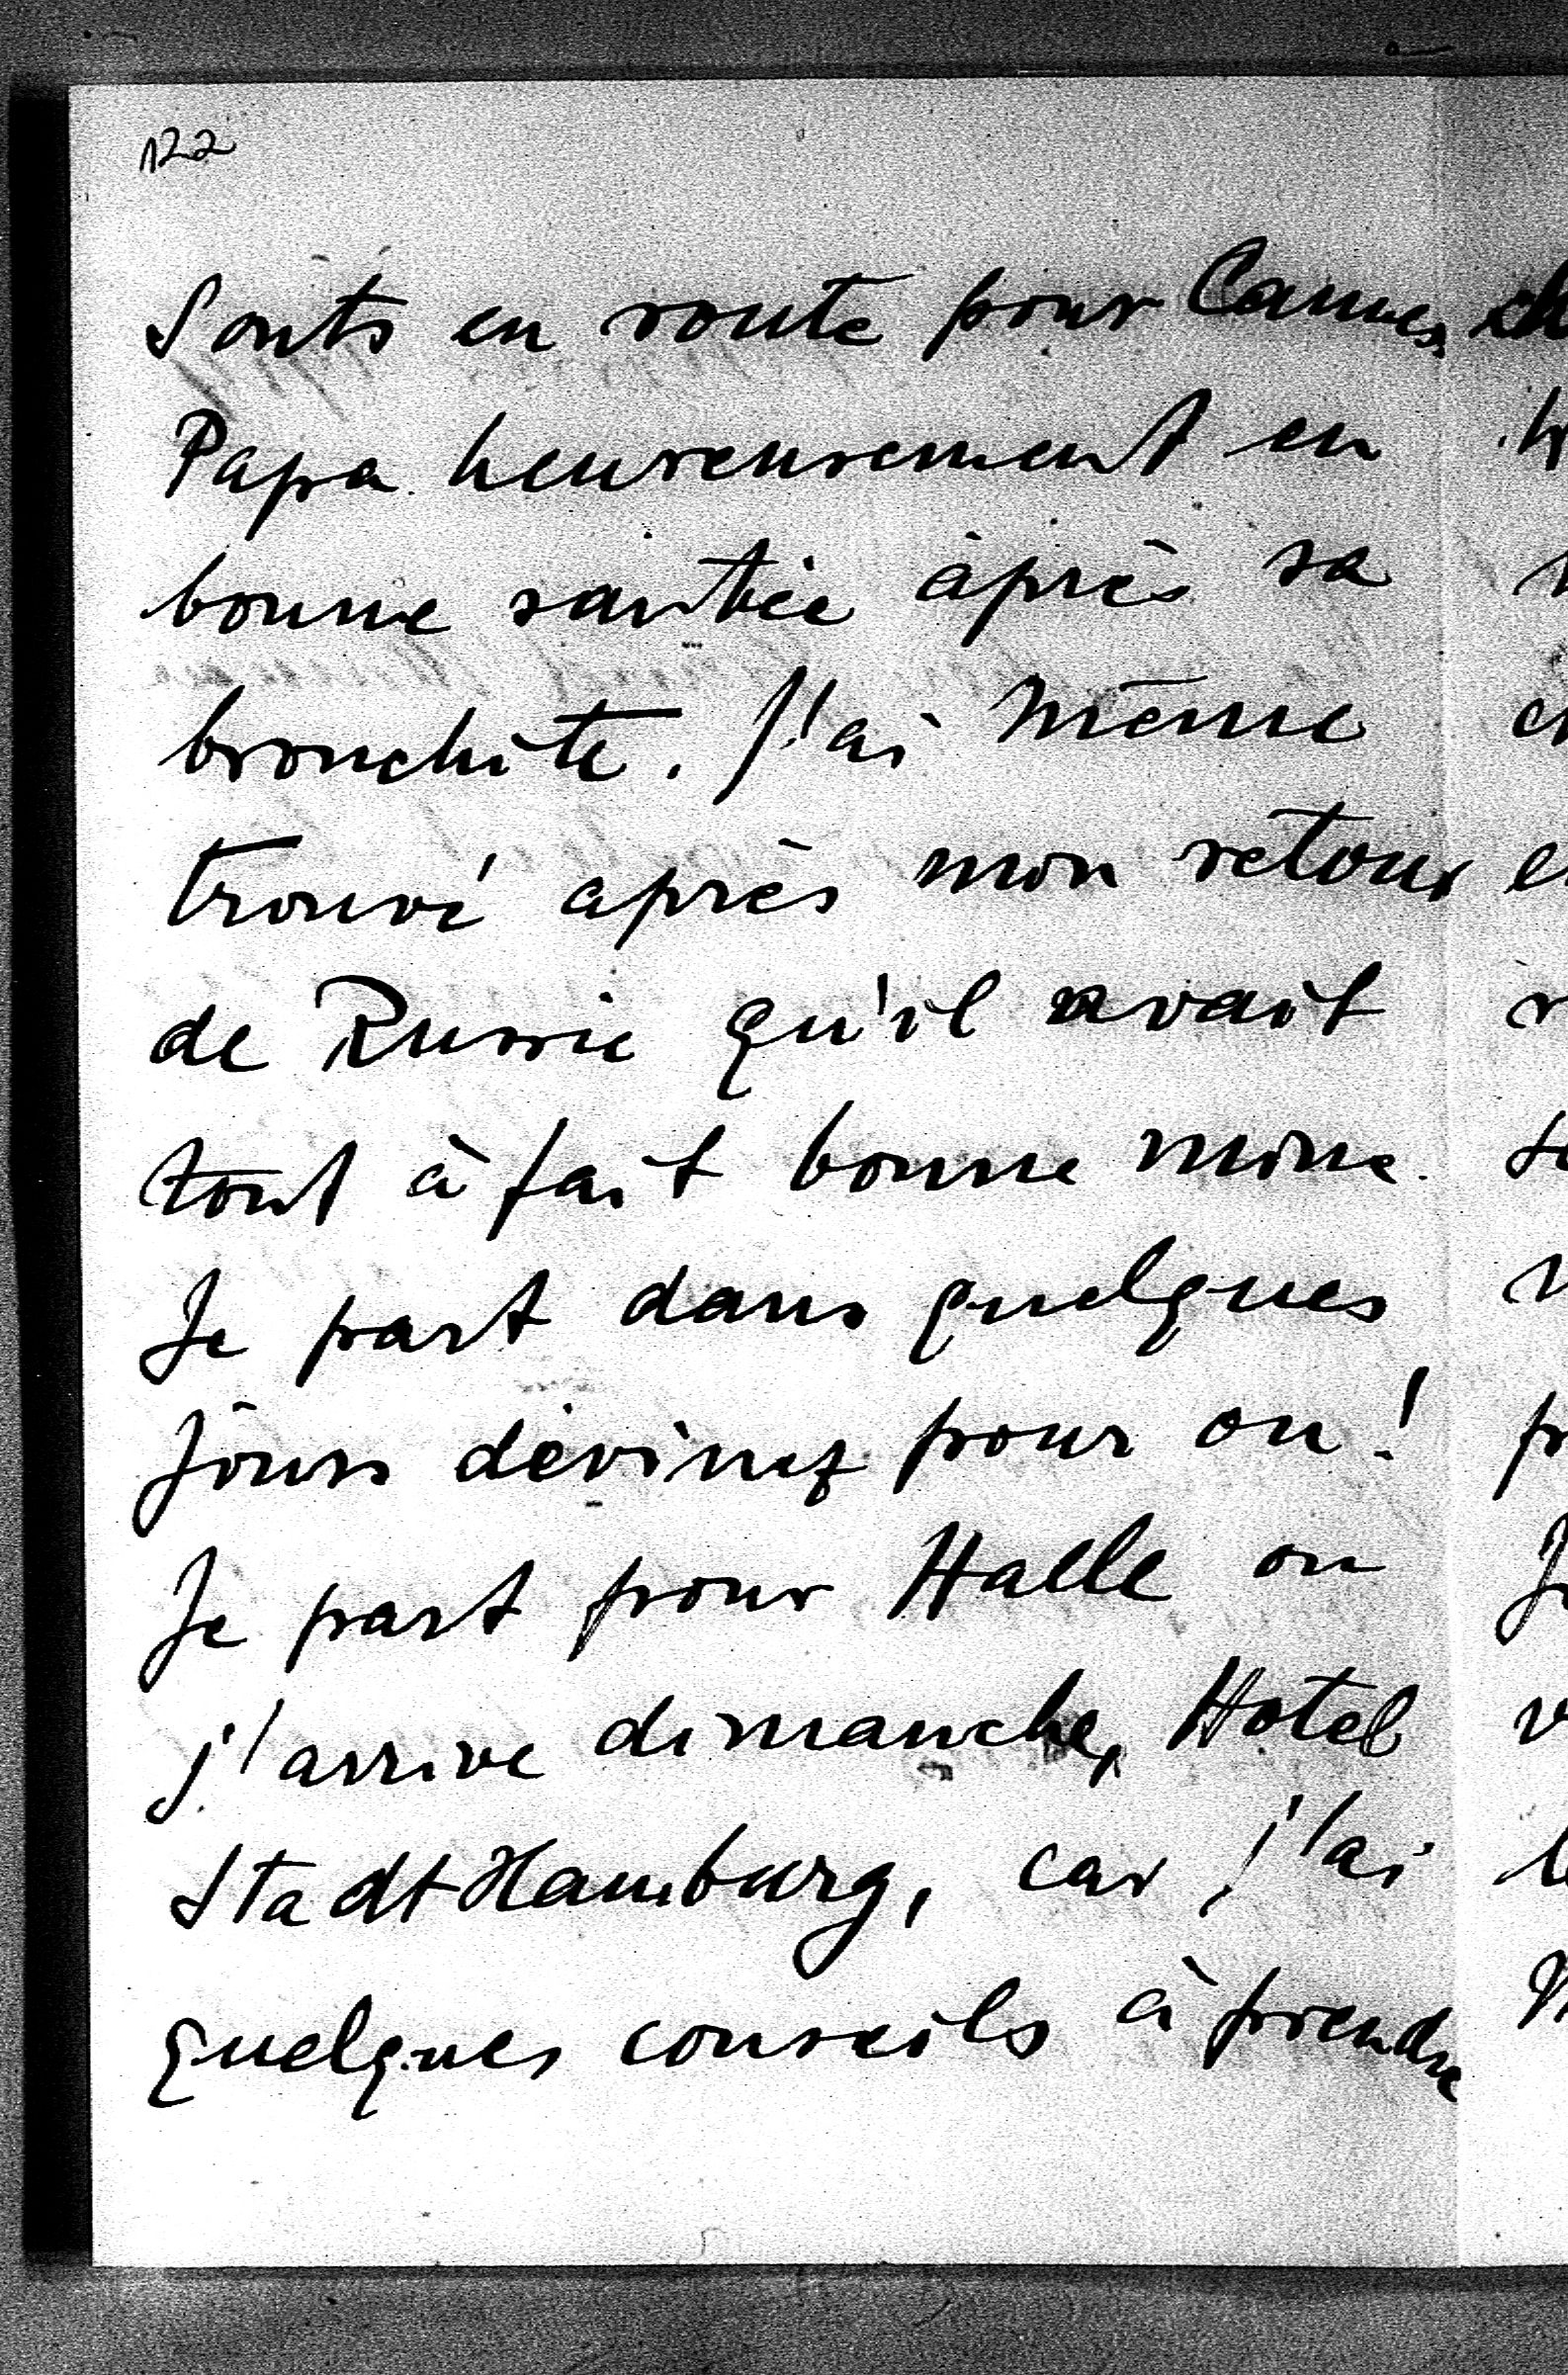 122
Sonts en route pour Cannes,
Papa heureusement en
bonne santée àprès sa
bronchite. J'ai même
trouvé après mon retour
de Russie qu'il avait
tout à fait bonne mine.
Je part dans quelques
jours dévinez pour ou!
Je part pour Halle ou
j'arrive dimanche, Hotel
Stadt Hamburg, car j'ai
quelques conseils à prendre